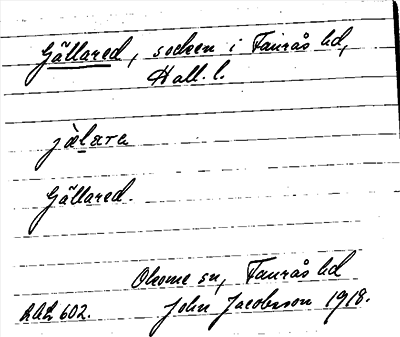 Gällared, socken i Faurås hd,
Hall. l.
jàlarα
Gällared.
Okome sn, Faurås hd
John Jacobsson 1918.
602.